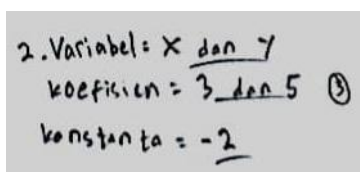 2. Variabel = X dan Y
koefisien = 3 dan 5 ③
konstanta = -2